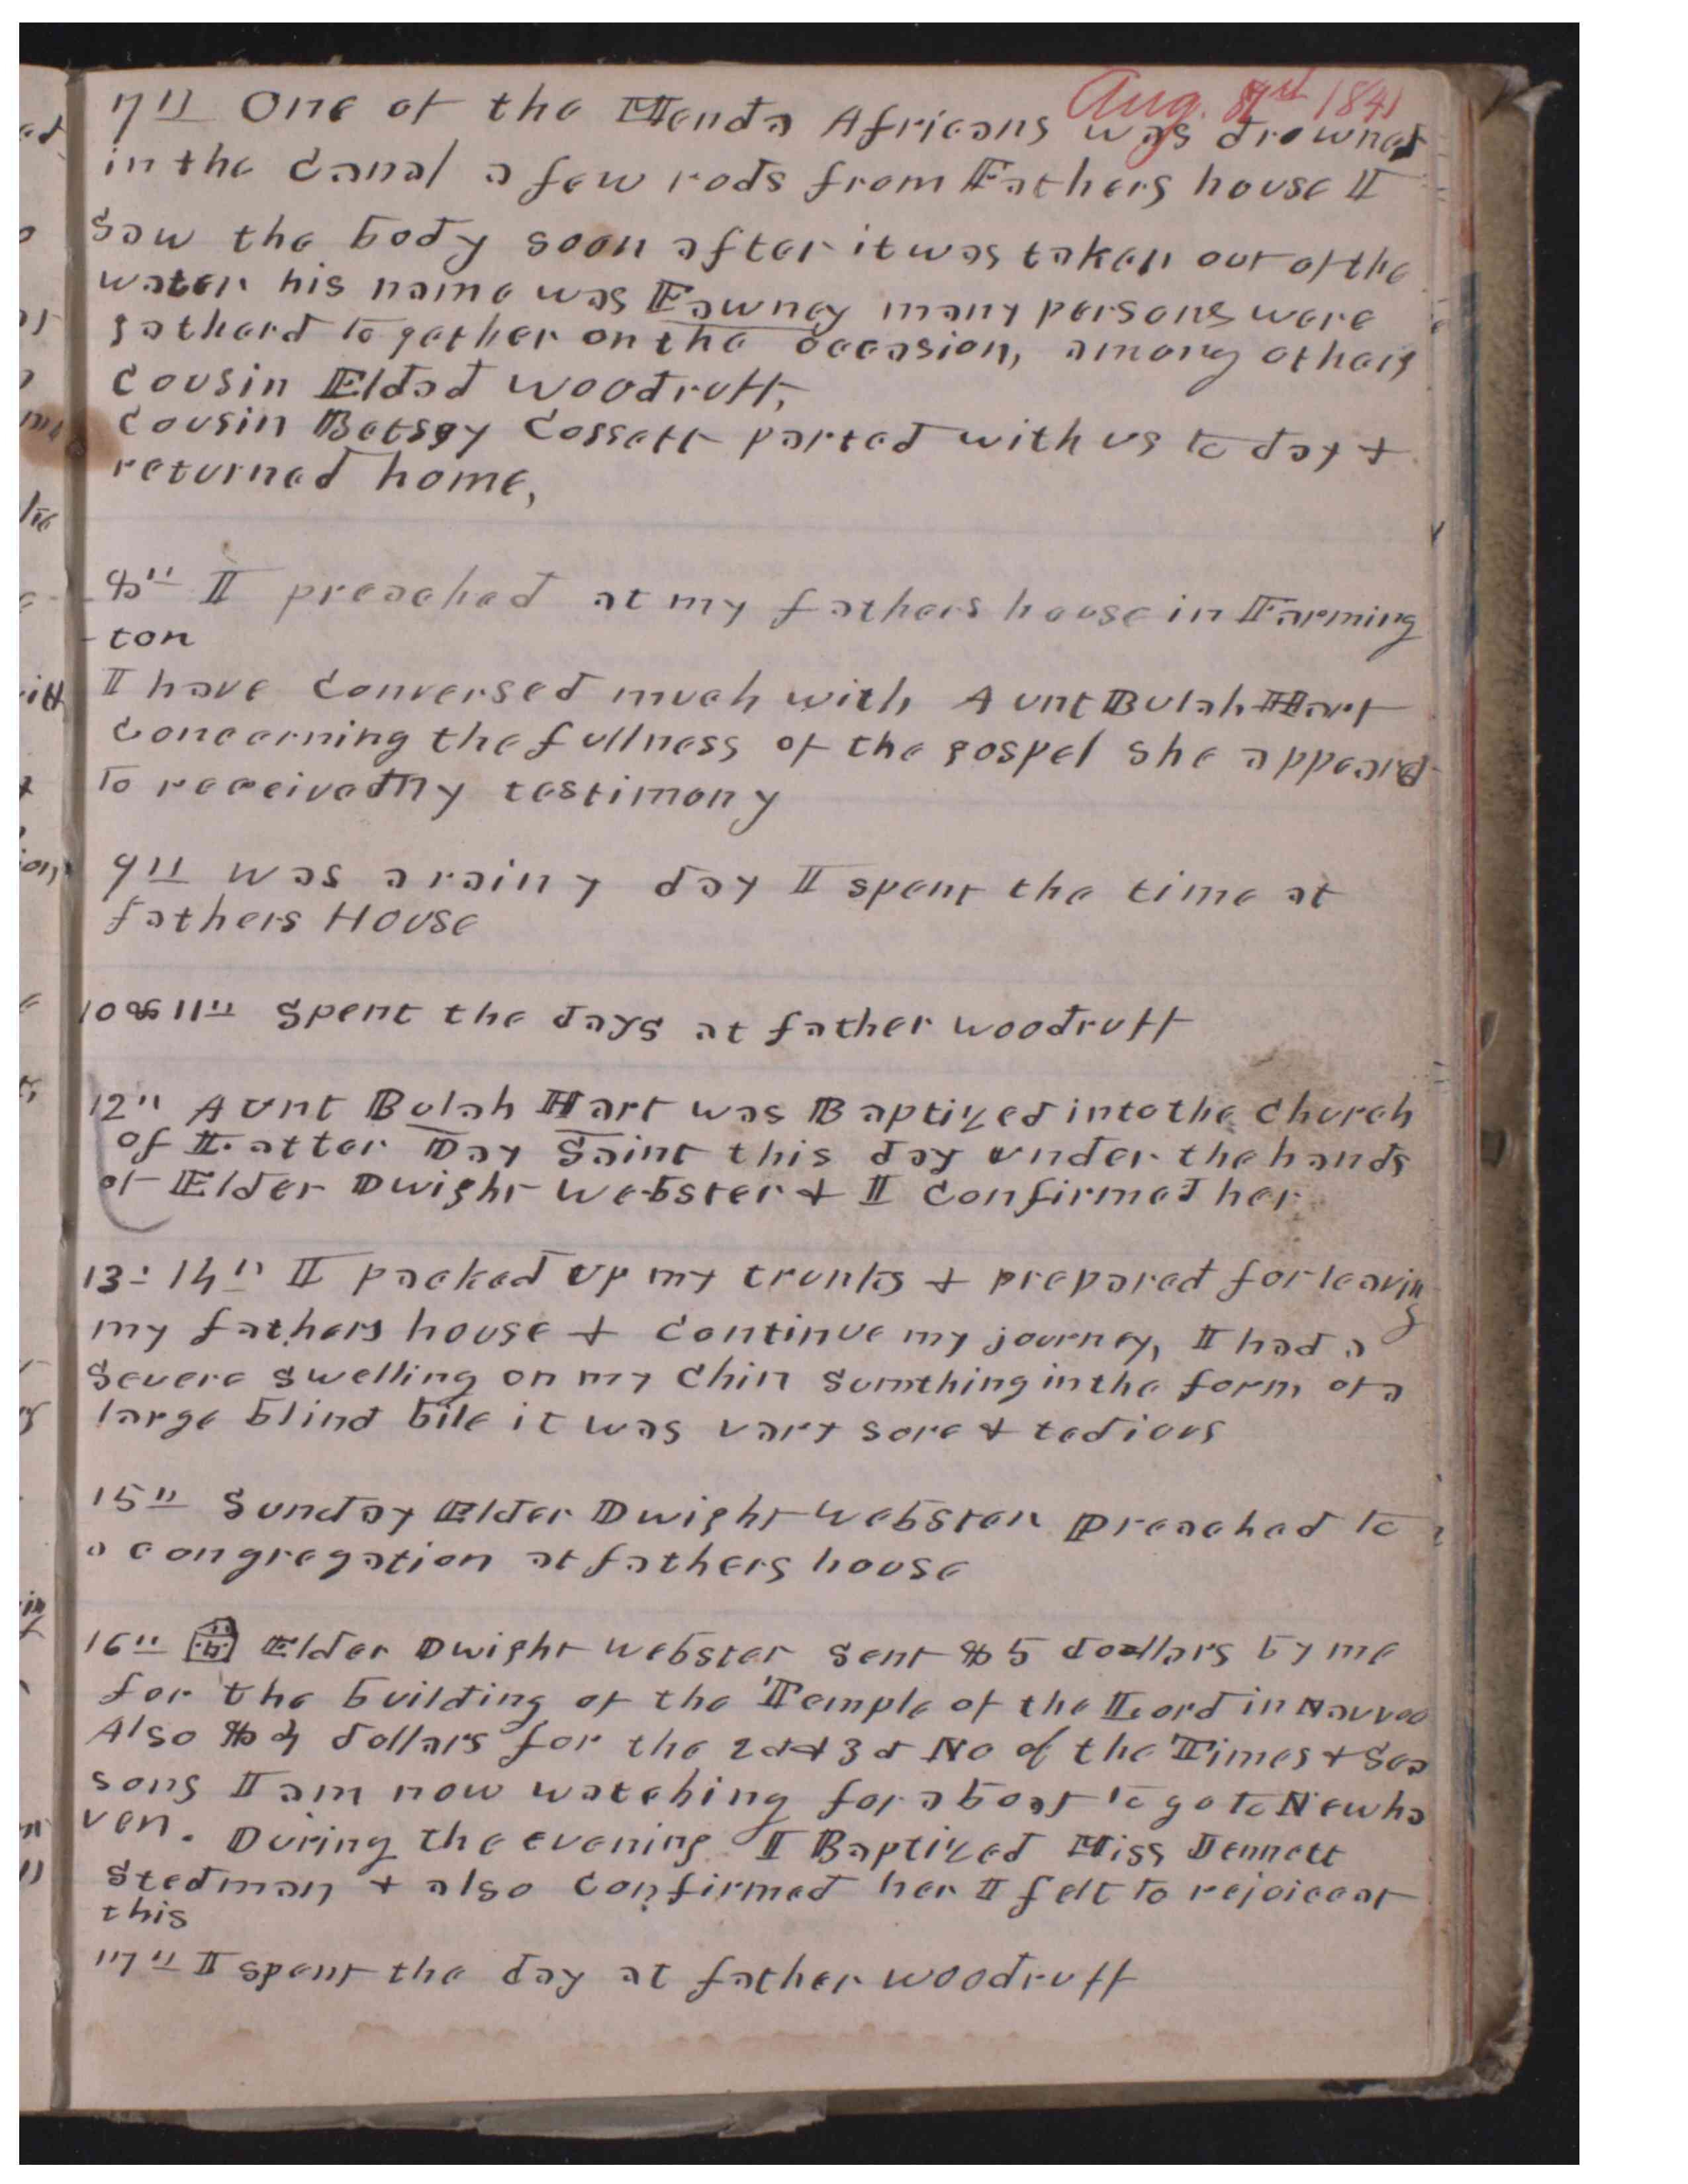 Aug. 7th 1841
7th One of the Menda Africans was drowned
in the Canal a few rods from Fathers house I
saw the body soon after it was taken out of the
water his name was Fawney many persons were
gatherd to gether on the occasion, among others
Cousin Eldad Woodruff,
Cousin Betsey Cossett parted with us to day &
returned home,
8th I preached at my fathers house in Farming
-ton
I have Conversed much with Aunt Bulah Hart
Concerning the fullness of the gospel she appeared
to receive my testimony
9th was a rainy day I spent the time at
fathers House
10 & 11th Spent the days at father woodruff
12th Aunt Bulah Hart was Baptized into the Church
of Latter Day Saint this day under the hands
of Elder Dwight Webster & I Confirmed her
13- 14th I packed up my trunks & prepared for leaving
my fathers house & Continue my journey, I had a
Severe swelling on my Chin sumthing in the form of a
large blind bile it was vary sore & tedious
15th Sunday Elder Dwight Webster Preached to
a congregation at fathers house
16th Elder Dwight Webster sent $5 doollars by me
for the building of the Temple of the Lord in Nauvoo
Also $4 dollars for the 2d & 3d No of the Times & Sea
sons I am now watching for a boat to go to Newha
ven. During the evening I Baptized Miss Jennett
Stedman & also Confirmed her I felt to rejoice at
this
17th I spent the day at father woodruff